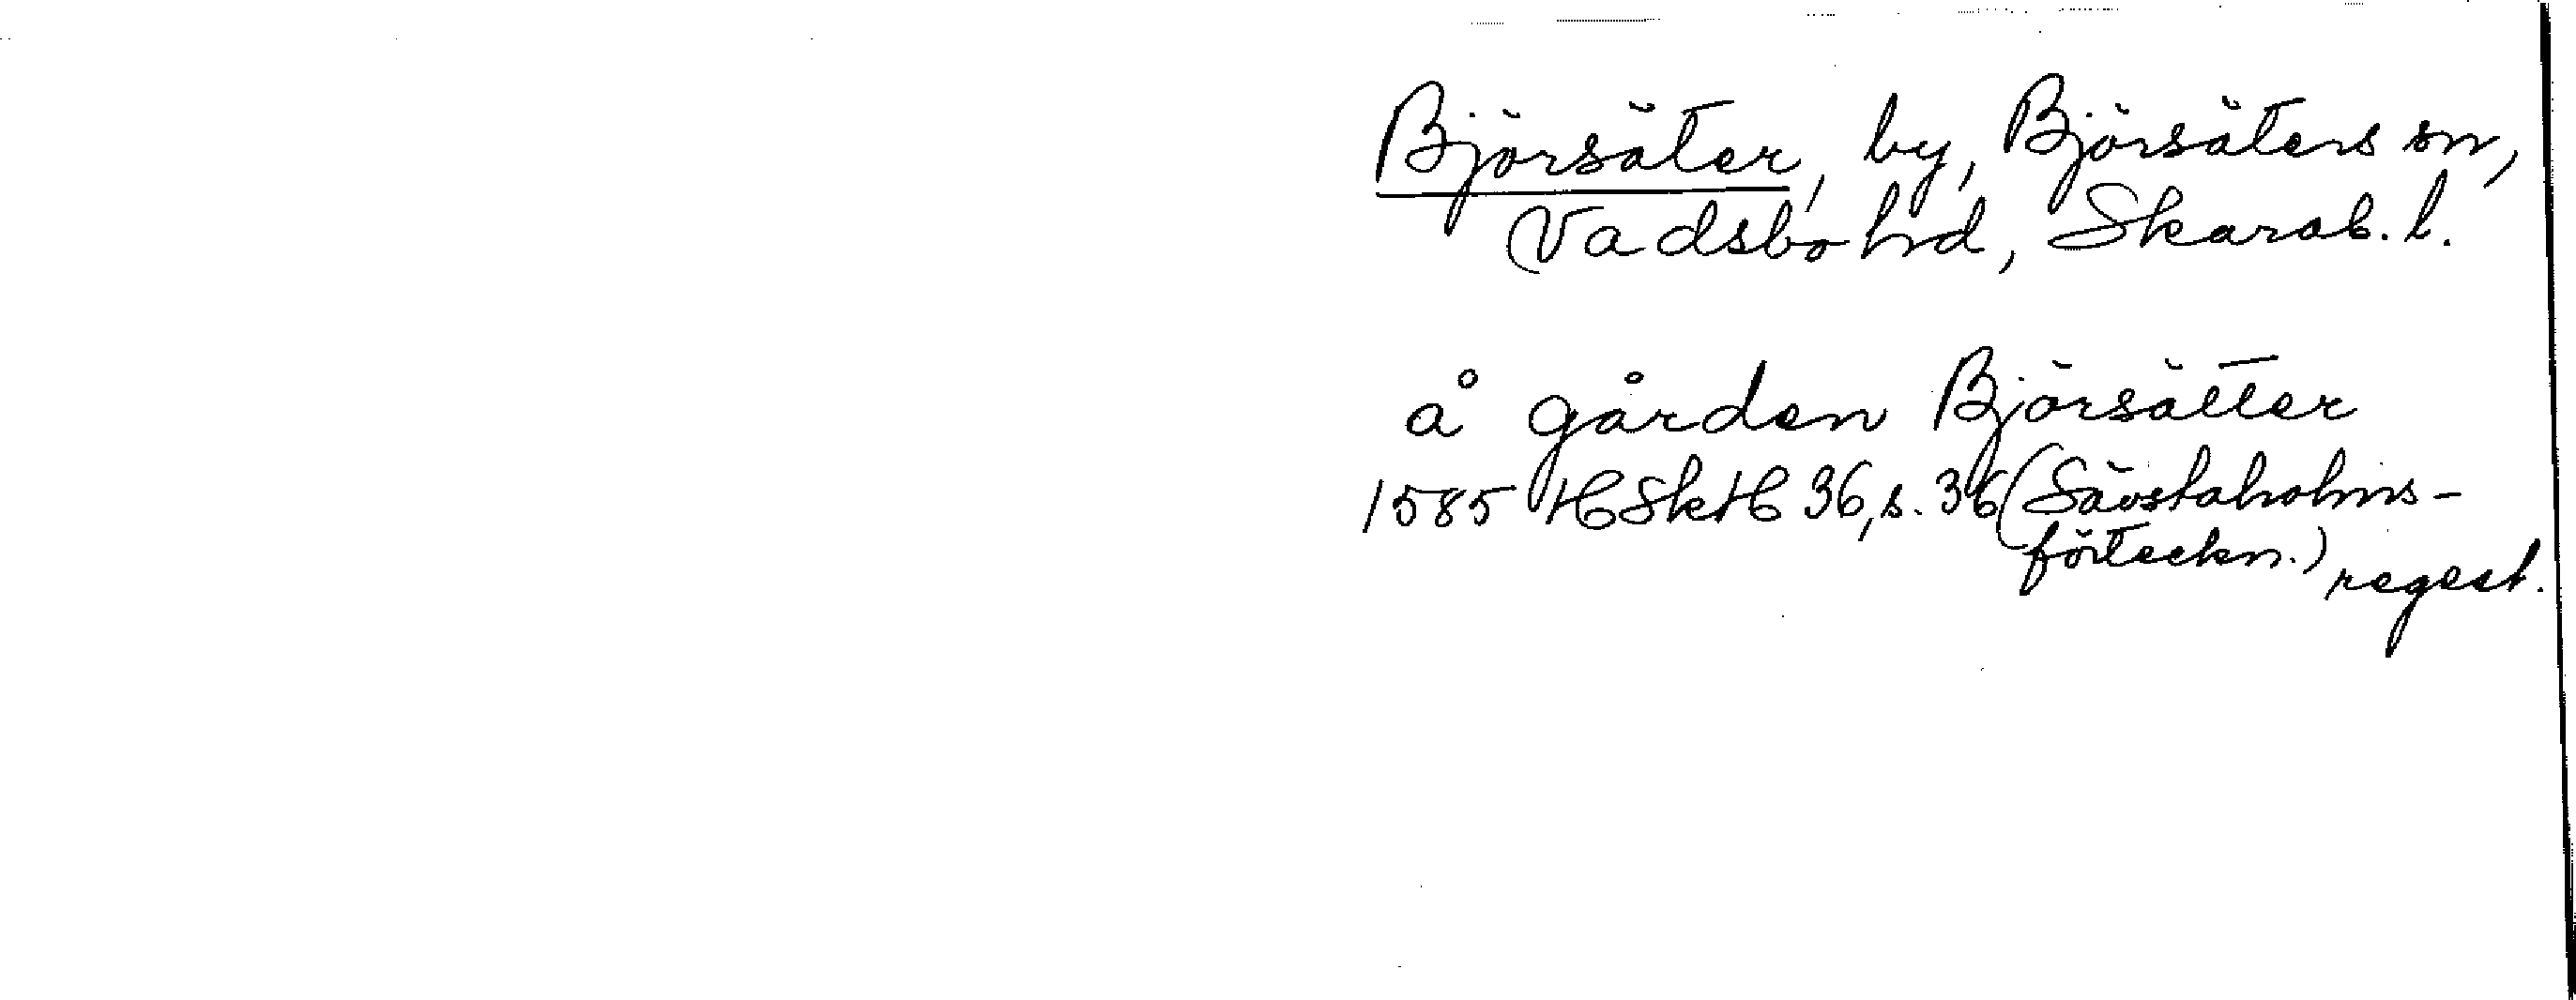 Björsäter, by, Björsäters sn,
Vadsbo hd, Skarab. l.
å gården Björsätter
1585 HSkH 36, s. 36 (Sävstaholms-
förteckn.) regest.